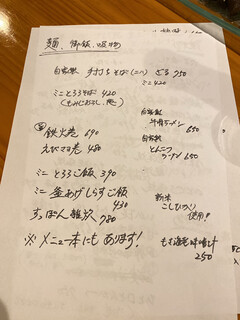 麺、御飯、吸物
自家製 手打ちそば(二八) ざる 750
ミニ 420
ミニとろろそば 420
自家製
牛骨ラーメン 650
鉄火巻 690
えびマヨ巻 480
自家製
とんこつラーメン 650
ミニ とろろご飯 390
ミニ 釜あげしらすご飯 430
新米
こしひかり使用!!
すっぽん雑炊 780
※メニュー本にもあります!
味噌汁
250